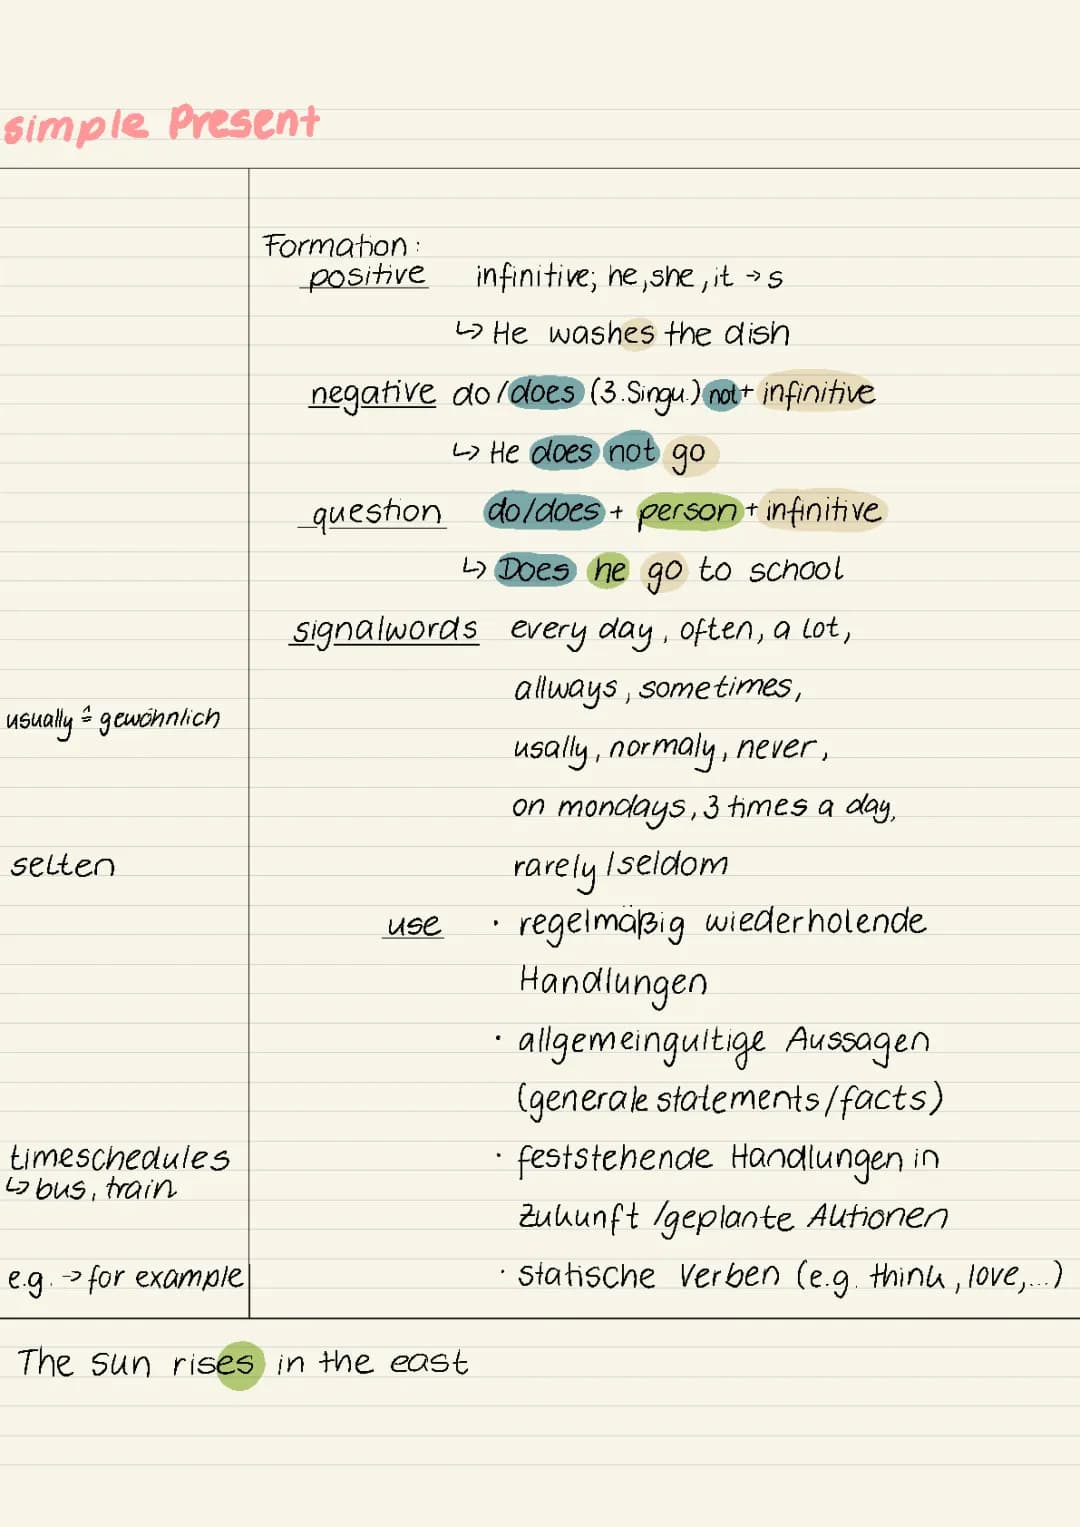 simple Present
Formation:
positive infinitive; he, she, it → s
↳ He washes the dish
negative do/does (3.Singu.) not + infinitive
↳ He does not go
question do/does + person + infinitive
↳ Does he go to school
signalwords every day, often, a lot,
allways, sometimes,
usually ≙ gewöhnlich
usally, normaly, never,
on mondays, 3 times a day,
selten rarely/seldom
use · regelmäßig wiederholende
Handlungen
· allgemeingultige Aussagen
(generale statements/facts)
timeschedules · feststehende Handlungen in
↳ bus, train
Zukunft/geplante Aktionen
e.g. → for example · statische Verben (e.g. think, love,...)
The sun rises in the east